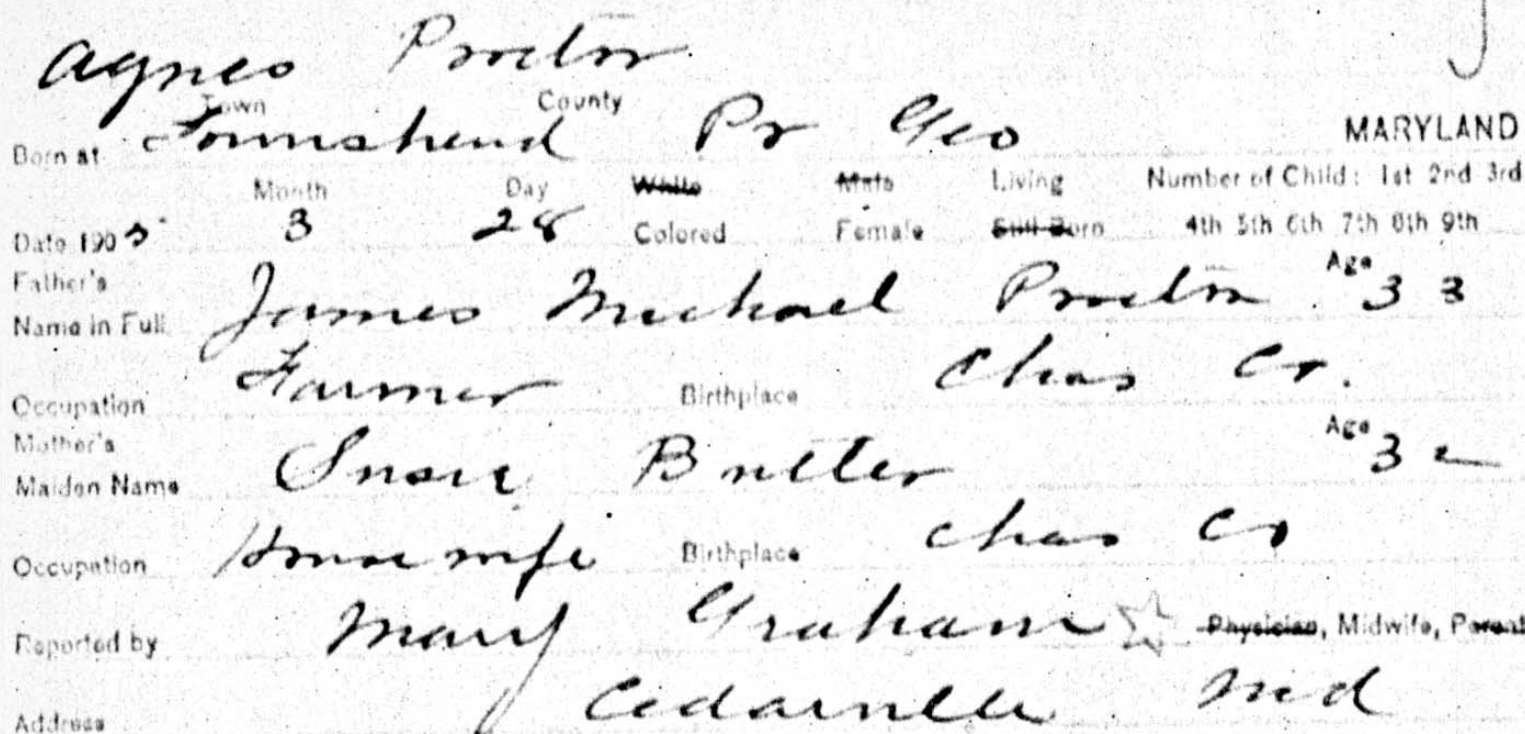 Agnes Proctor
Town County
Born at Townshend Pr Geo MARYLAND
Month Day White Male Living Number of Child: 1st 2nd 3rd
Date 1905 3 28 Colored Female Still Born 4th 5th 6th 7th 8th 9th
Father's
Name in Full James Michael Proctor Age 33
Occupation Farmer Birthplace Chas Co.
Mother's
Maiden Name Susie Butler Age 32
Occupation Housewife Birthplace Chas Co
Reported by Mary Graham Physician, Midwife, Parent
Address Cedarville Md